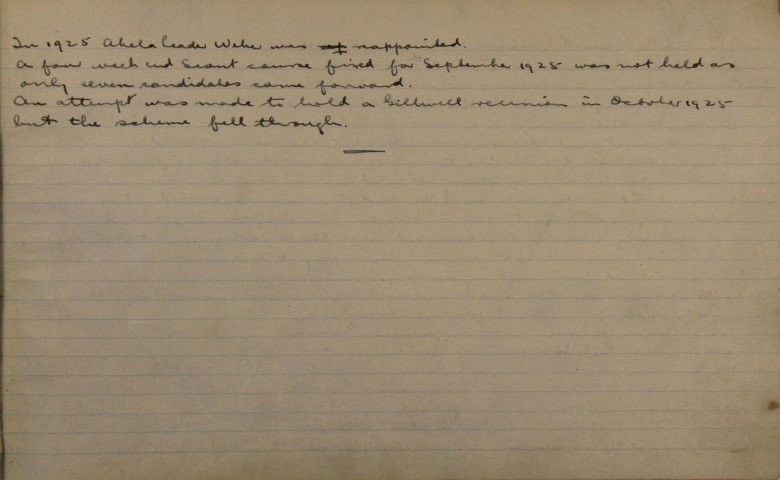 In 1925 Akela Leader Wehe was reappointed.
A four week end Scout course fixed for September 1925 was not held as
only seven candidates came forward.
An attempt was made to hold a Gillwell reunion in October 1925
but the scheme fell through.